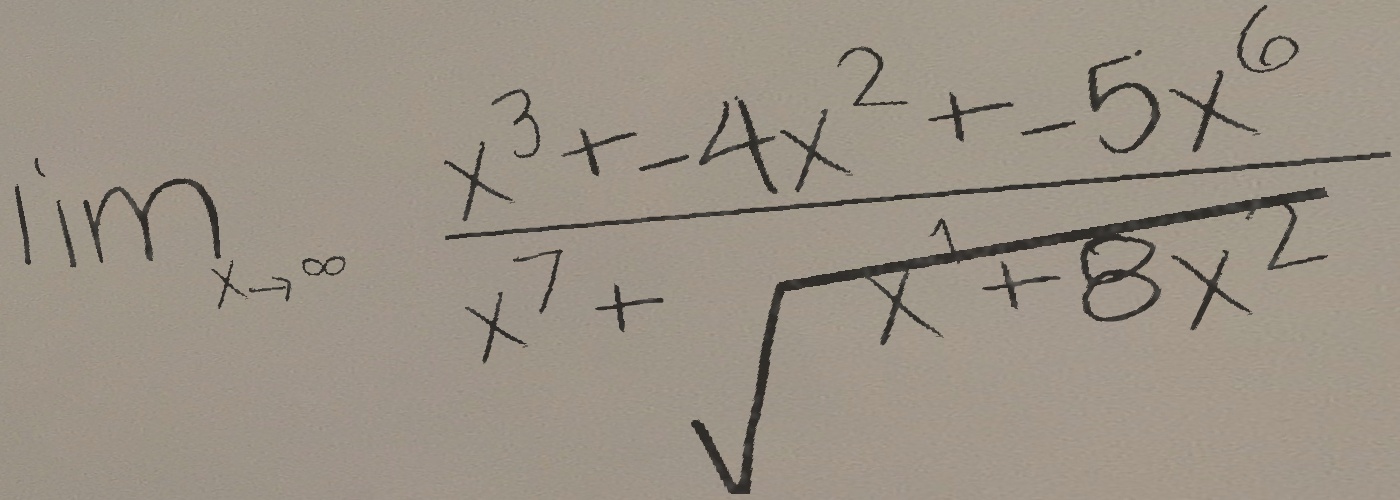 \lim_{x \to \infty} \frac{x^3 + -4x^2 + -5x^6}{x^7 + \sqrt{x^1 + 8x^2}}